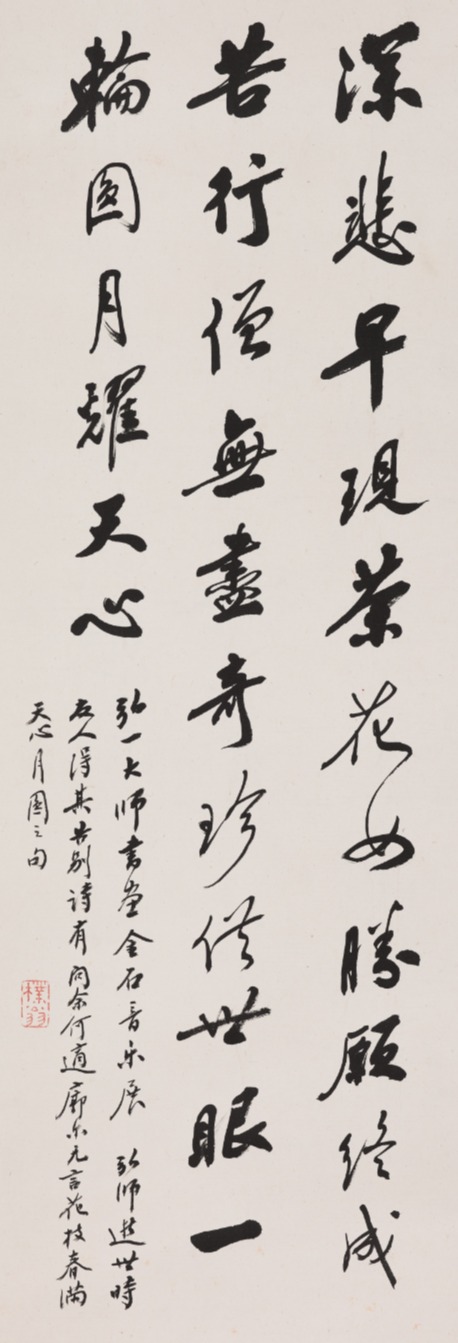 深悲早現茶花女勝願終成
苦行僧無盡奇珍供世眼一
輪圓月耀天心
弘一大师書画金石音乐展 弘师逝世時
友人得其告别诗有问余何適廓尔亡言花枝春满
天心月圆之句
樸翁